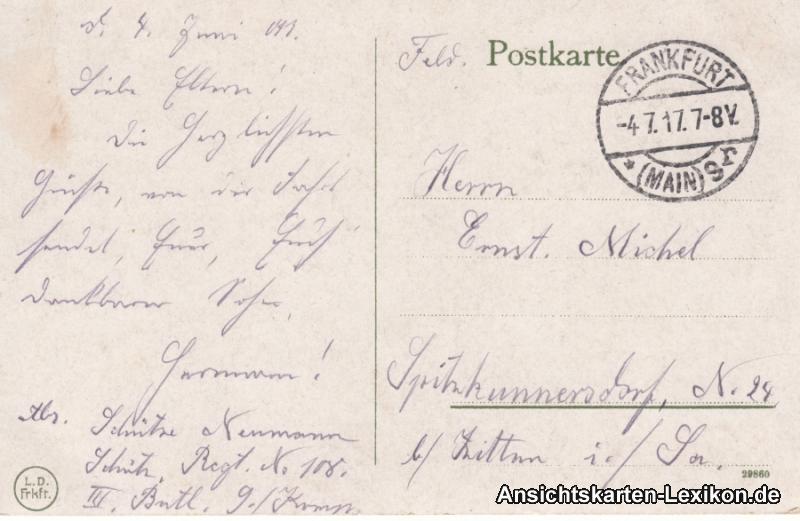 d. 4. Juni
Liebe Eltern!
Die Herzlichsten
Grüße, von der Fahrt
sendet, Euer, Euch
dankbarer Sohn,
Hermann!
Abs. Schütze Neumann
Schütz. Regt. No 108.
III. Batl. 9./Komp.
L.D.
Frkft.
Feld. Postkarte
FRANKFURT
-4.7.17.7-8V.
* (MAIN) 9 r
Herrn
Ernst. Michel
Spitzkunnersdorf, No. 24
b/ Zittau i./ Sa.
29860
Ansichtskarten-Lexikon.de